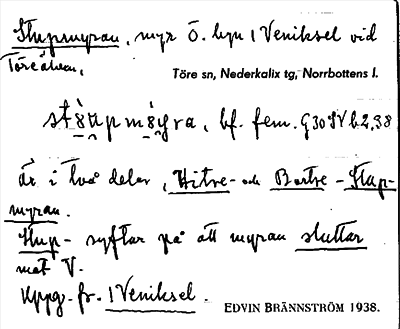 Stupmyran, myr Ö. byn 1 Veniksel vid
Töreälven,
Töre sn, Nederkalix tg, Norrbottens l.
bf. fem. G30 IV b.2,38
är i två delar, Hitre- och Bortre-Stup-
myran.
Stup- syftar på att myran sluttar
mot V.
Uppg. fr. 1 Veniksel.
EDVIN BRÄNNSTRÖM 1938.